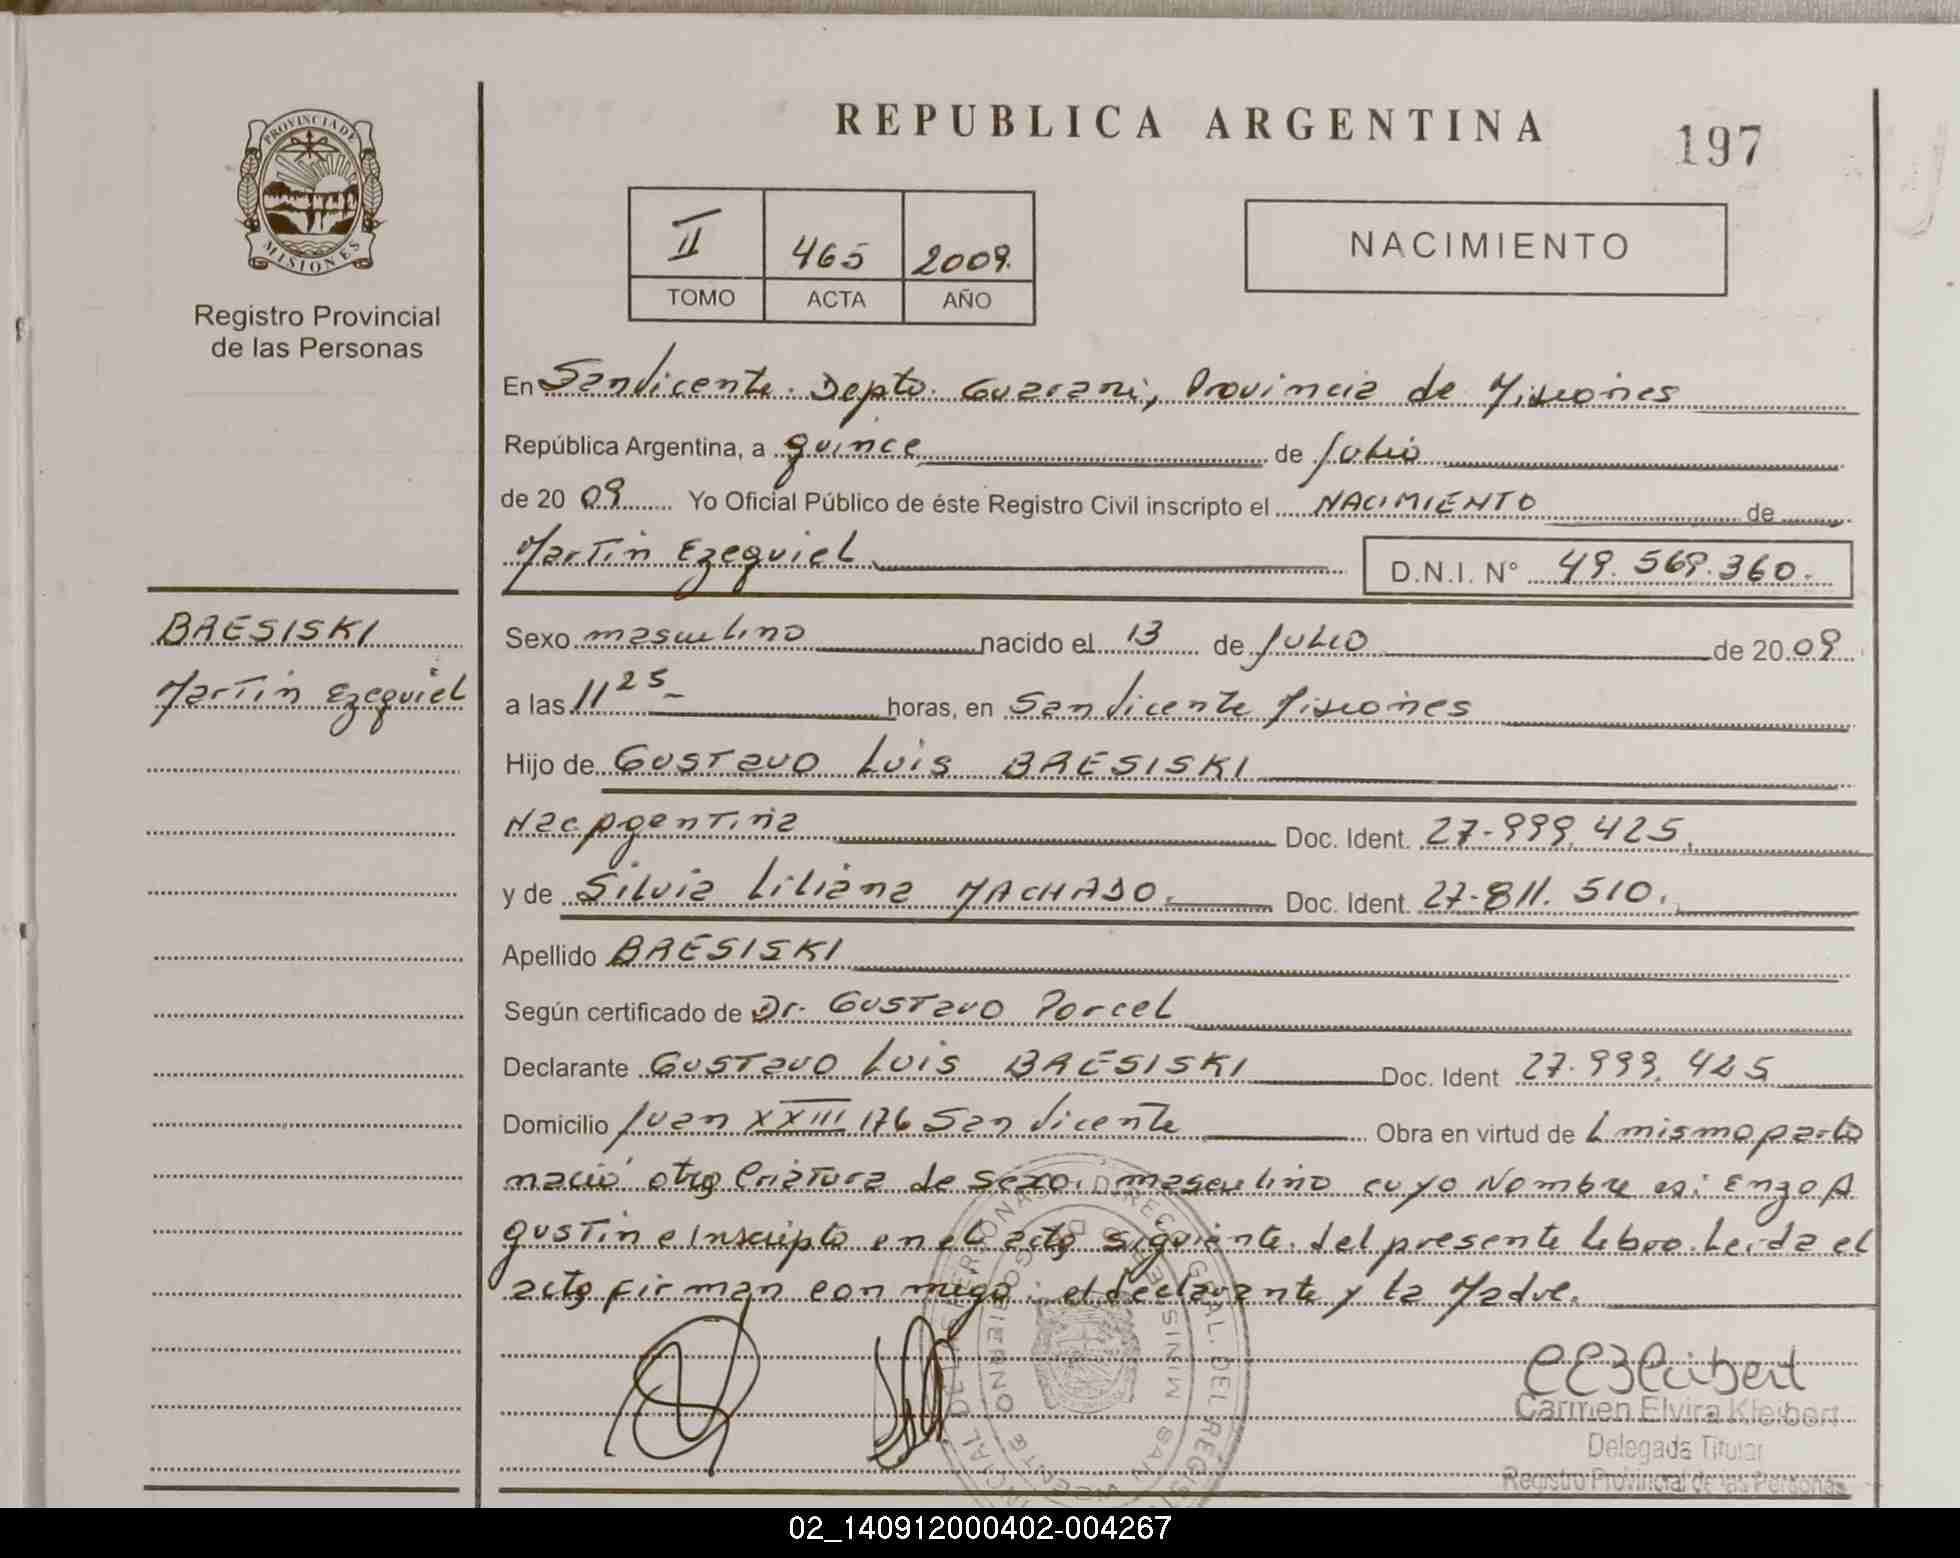 PROVINCIA DE
MISIONES
Registro Provincial
de las Personas
BRESISKI
Martin Ezequiel
REPUBLICA ARGENTINA
197
II 465 2009.
TOMO ACTA AÑO
NACIMIENTO
En San Vicente. Depto. Guarani, Provincia de Misiones
República Argentina, a quince de Julio
de 20 09 Yo Oficial Público de éste Registro Civil inscripto el NACIMIENTO de
Martin Ezequiel D.N.I. N° 49.569.360.
Sexo masculino nacido el 13 de Julio de 20 09
a las 11 25 horas, en San Vicente Misiones
Hijo de Gustavo Luis BRESISKI
Nac Argentina Doc. Ident. 27.999.425.
y de Silvia Liliana MACHADO. Doc. Ident. 27.811.510.
Apellido BRESISKI
Según certificado de Dr. Gustavo Porcel
Declarante Gustavo Luis BRESISKI Doc. Ident 27.999.425
Domicilio Juan XXIII 176 San Vicente Obra en virtud de L mismo parto
nació otra Criatura de sexo: masculino cuyo Nombre es: Enzo A
gustin e Inscripto en el acta siguiente del presente libro. Leida el
acta firman con migo: el declarante y la Madre.
Carmen Elvira Kleibert
Delegada Titular
Registro Provincial de las Personas
02_140912000402-004267